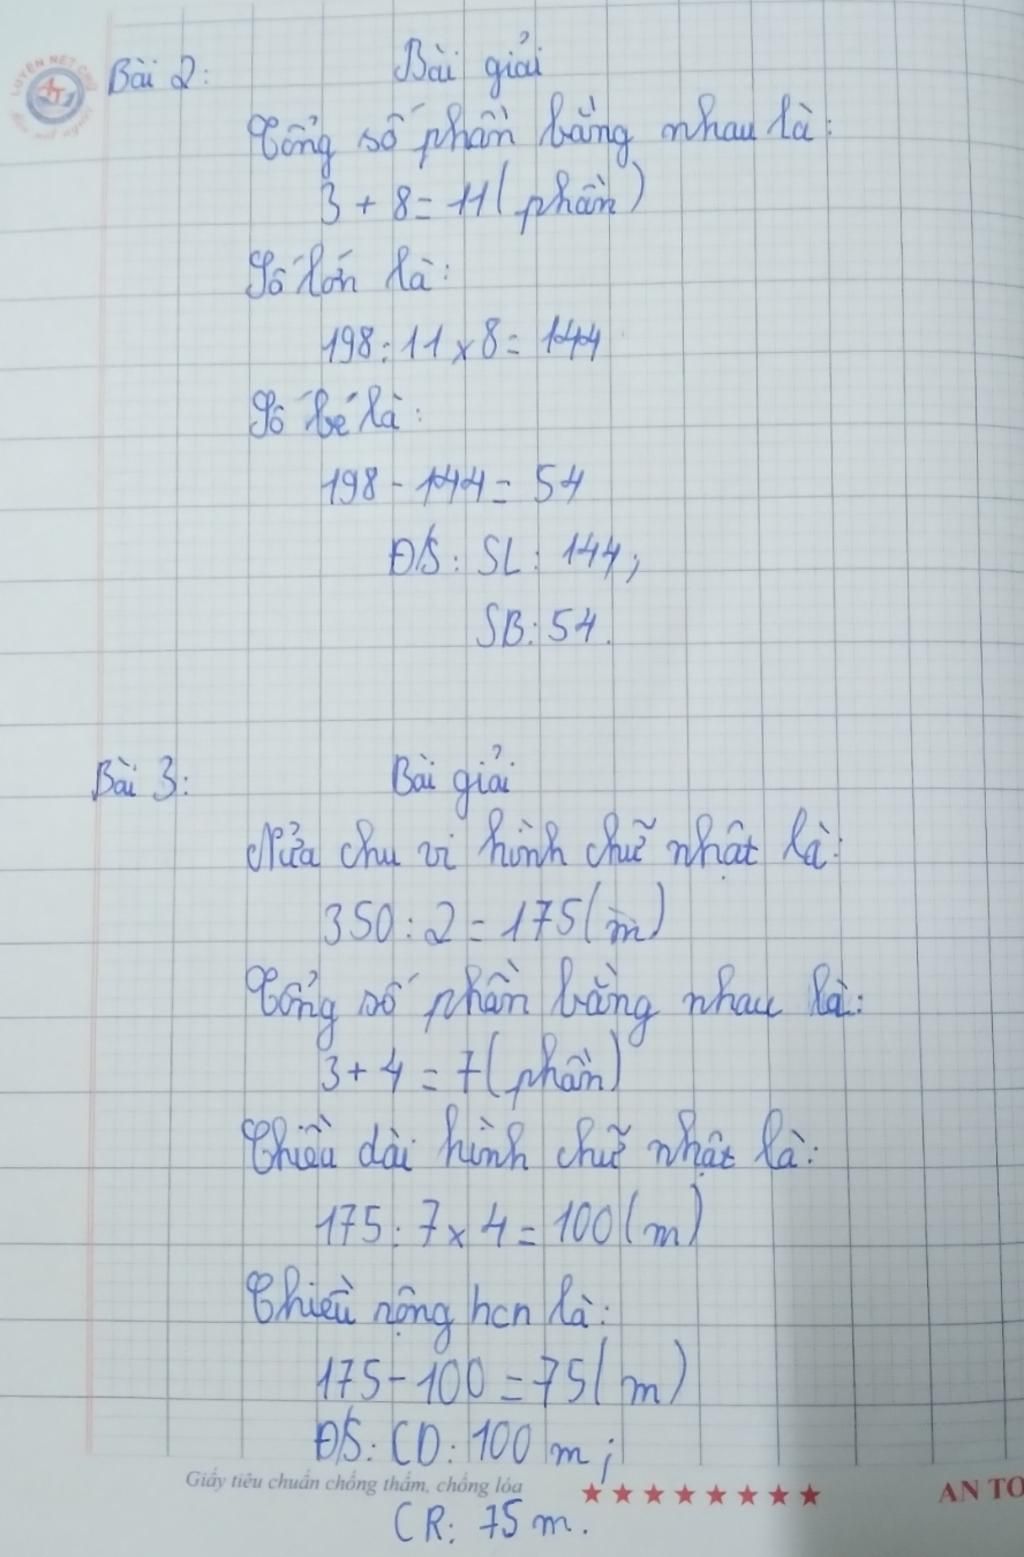 LUYỆN NÉT CHỮ
Bài 2: Bài giải
Tổng số phần bằng nhau là:
3 + 8 = 11 (phần)
Số lớn là:
198 : 11 x 8 = 144
Số bé là:
198 - 144 = 54
Đ/S: SL: 144;
SB: 54.
Bài 3: Bài giải
Nửa chu vi hình chữ nhật là:
350 : 2 = 175 (m)
Tổng số phần bằng nhau là:
3 + 4 = 7 (phần)
Chiều dài hình chữ nhật là:
175 : 7 x 4 = 100 (m)
Chiều rộng hcn là:
175 - 100 = 75 (m)
Đ/S: CD: 100 m;
Giấy tiêu chuẩn chống thấm, chống lóa
AN TO
CR: 75 m.